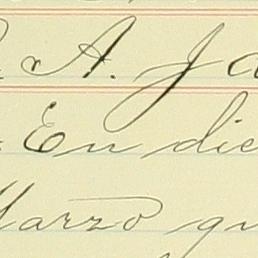 A. Ja
En die
Marzo qu